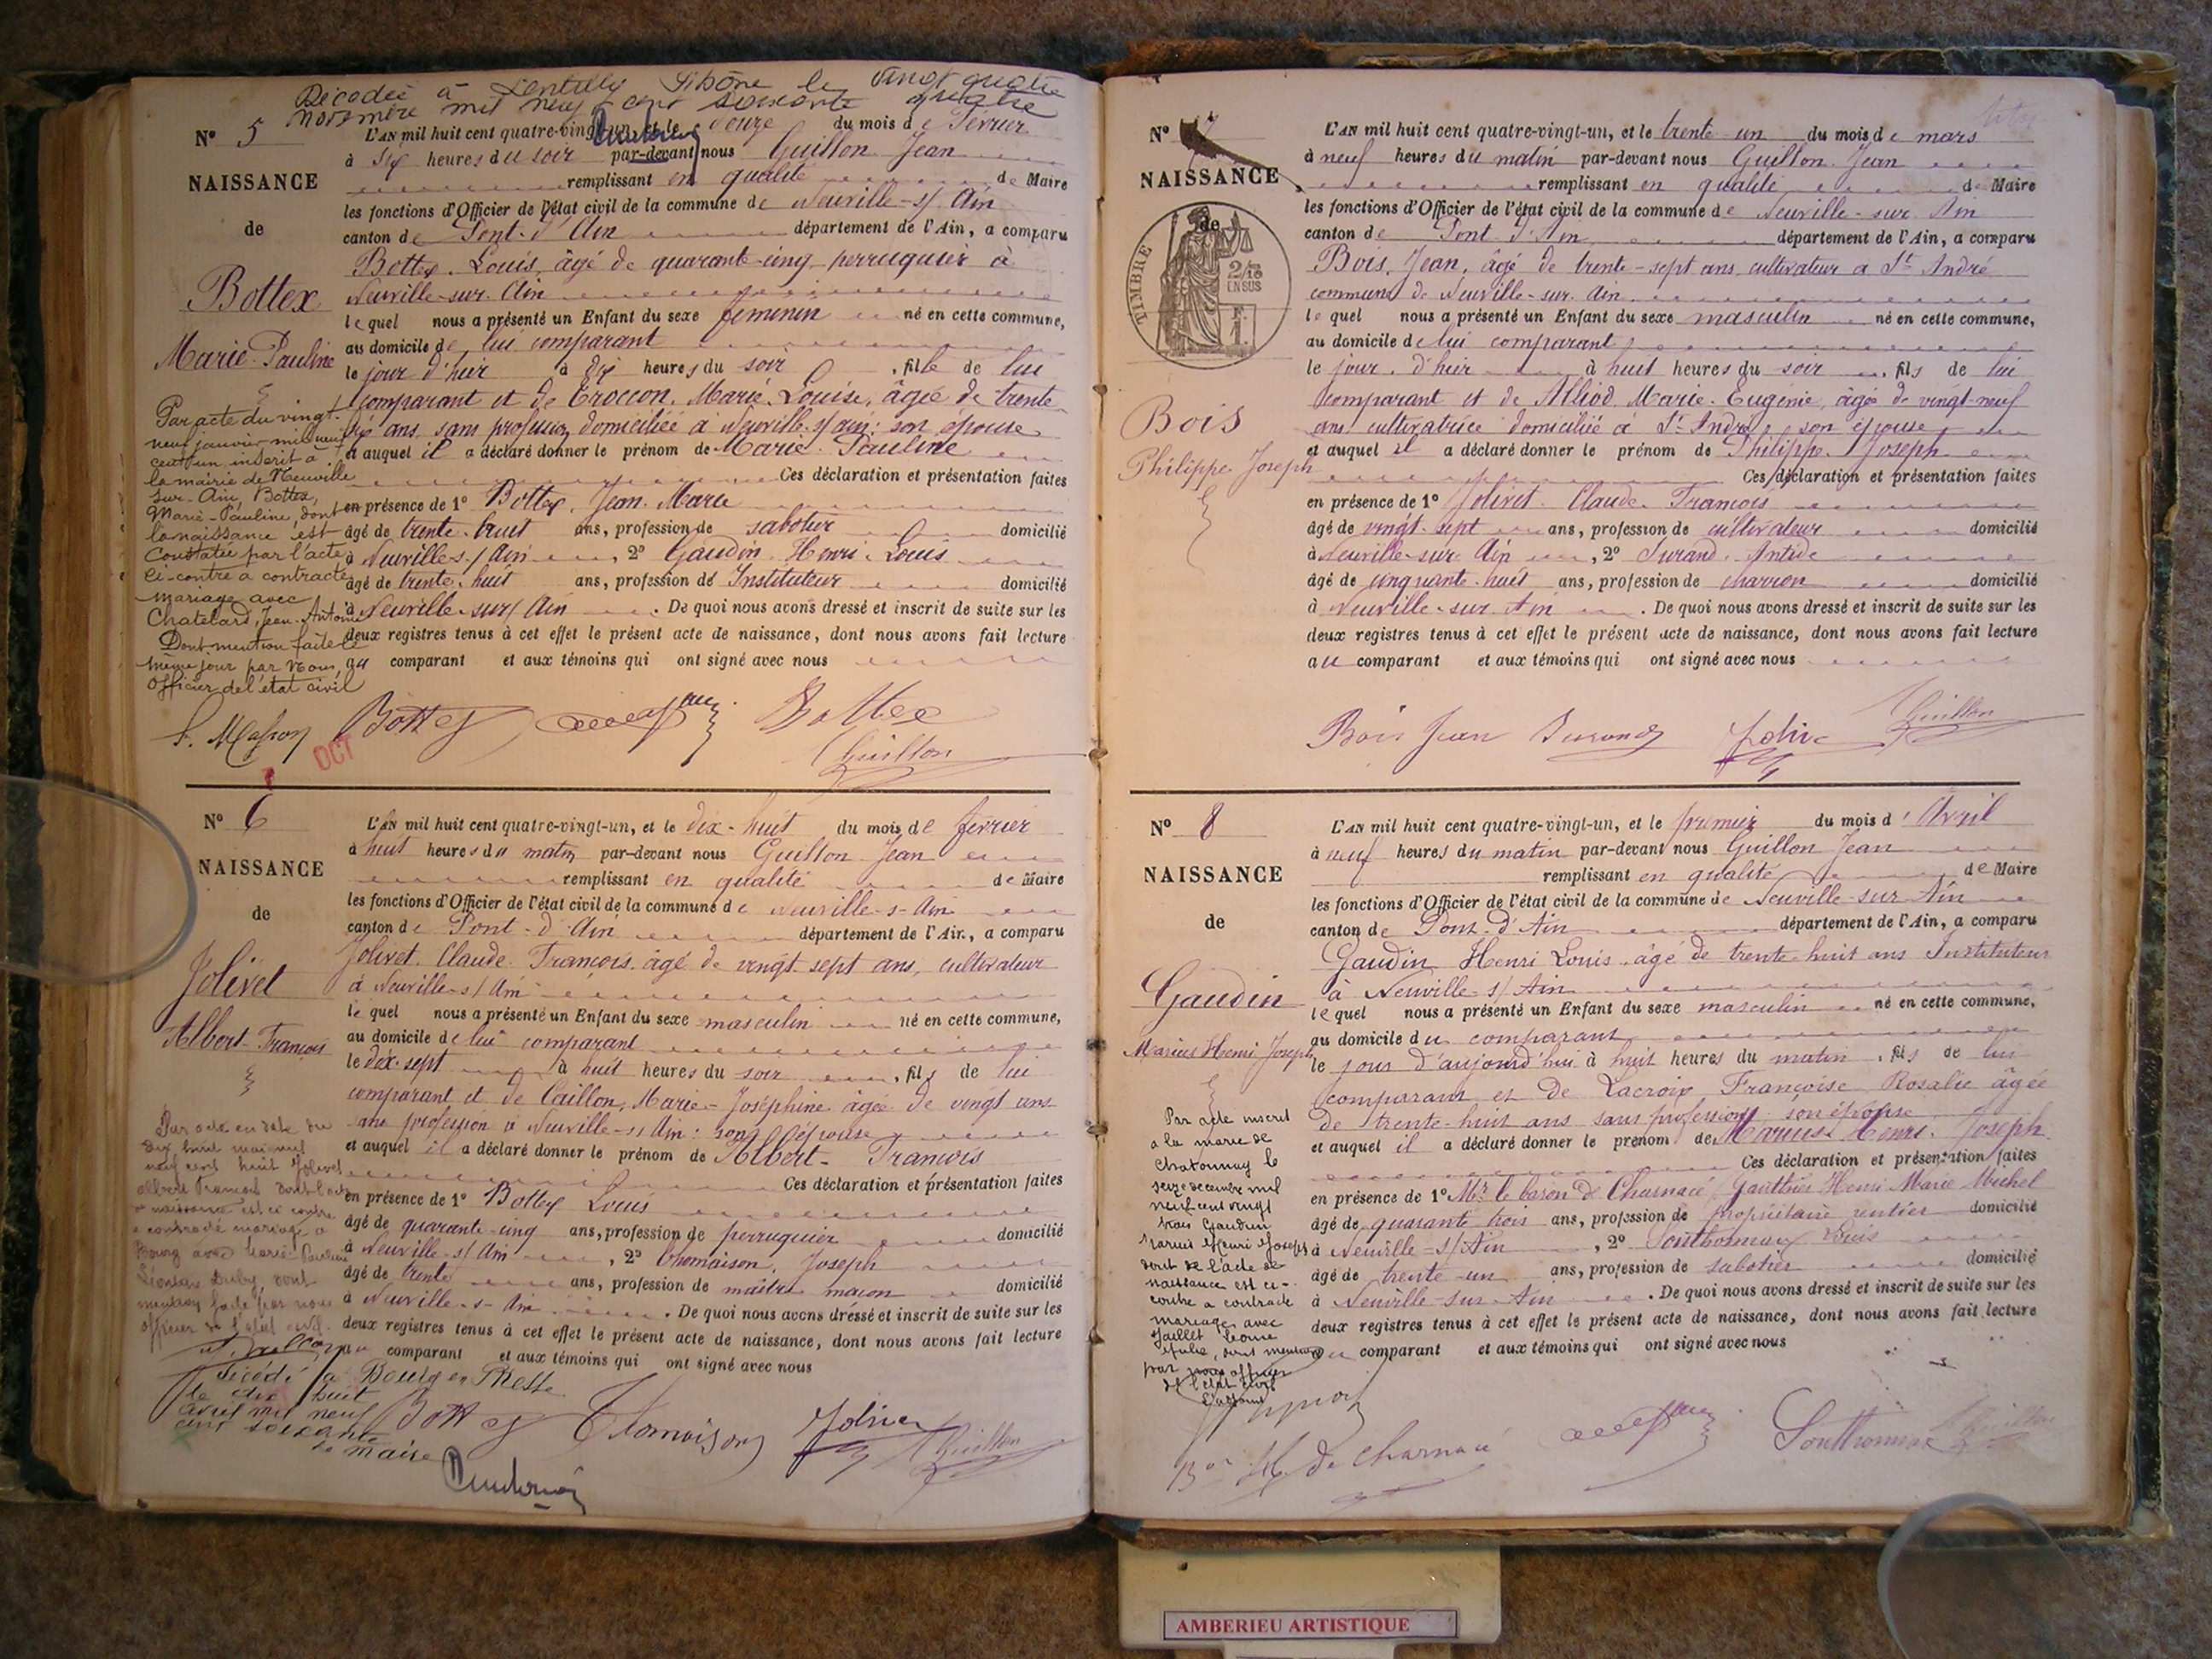 Décédée à Lentilly Rhône le vingt quatre
novembre mil neuf cent soixante quatre
N° 5
NAISSANCE
de
Bottex
Marie-Pauline
L'AN mil huit cent quatre-vingt-un, et le douze du mois de Février
à six heures du soir par-devant nous Guillon Jean
remplissant en qualité de Maire
les fonctions d'Officier de l'état civil de la commune de Neuville-s/ Ain
canton de Pont-d'Ain département de l'Ain, a comparu
Bottex Louis, âgé de quarante-cinq, perruquier à
Neuville-sur-Ain
lequel nous a présenté un Enfant du sexe féminin né en cette commune,
au domicile de lui comparant
le jour d'hier à dix heures du soir, fille de lui
comparant et de Croccon, Marie Louise, âgée de trente
six ans, sans profession domiciliée à Neuville s/ ain: son épouse
et auquel il a déclaré donner le prénom de Marie Pauline
Ces déclaration et présentation faites
en présence de 1° Bottex, Jean-Marie
âgé de trente-huit ans, profession de sabotier domicilié
à Neuville-s/ Ain, 2° Gaudin Henri-Louis
âgé de trente-huit ans, profession de Instituteur domicilié
à Neuville-sur/ Ain. De quoi nous avons dressé et inscrit de suite sur les
deux registres tenus à cet effet le présent acte de naissance, dont nous avons fait lecture
au comparant et aux témoins qui ont signé avec nous
Par acte du vingt-
neuf janvier mil neuf
cent un inscrit à
la mairie de Neuville
sur-Ain, Bottex,
Marie-Pauline, dont
la naissance est
constatée par l'acte
ci-contre a contracté
mariage avec
Chatelard, Jean-Antoine
Dont mention faite le
même jour par nous,
officier de l'état civil
Bottex Bottex
Guillon
OCT
N° 6
NAISSANCE
de
Jolivet
Albert-François
L'AN mil huit cent quatre-vingt-un, et le dix-huit du mois de février
à huit heures du matin par-devant nous Guillon Jean
remplissant en qualité de Maire
les fonctions d'Officier de l'état civil de la commune de Neuville-s-Ain
canton de Pont-d'Ain département de l'Ain, a comparu
Jolivet, Claude-François, âgé de vingt sept ans, cultivateur
à Neuville-s/ Ain
lequel nous a présenté un Enfant du sexe masculin né en cette commune,
au domicile de lui comparant
le dix-sept à huit heures du soir, fils de lui
comparant et de Caillon, Marie-Joséphine âgée de vingt ans
sans profession à Neuville-s/ Ain: son épouse
et auquel il a déclaré donner le prénom de Albert-François
Ces déclaration et présentation faites
en présence de 1° Bottex Louis
âgé de quarante-cinq ans, profession de perruquier domicilié
à Neuville-s/ Ain, 2° Chomaison, Joseph
âgé de trente ans, profession de maître maçon domicilié
à Neuville-s-Ain. De quoi nous avons dressé et inscrit de suite sur les
deux registres tenus à cet effet le présent acte de naissance, dont nous avons fait lecture
au comparant et aux témoins qui ont signé avec nous
Par acte en date du
dix huit mai mil
neuf cent huit Jolivet
Albert François dont l'acte
de naissance est ci contre
a contracté mariage à
Bourg avec Marie-Pauline
Léontine, dont
mention faite par nous
officier de l'état civil.
Décédé à Bourg en Bresse
le dix huit
avril mil neuf
cent soixante
Le maire
Bottex Chomaison Jolivet Guillon
N° 7
NAISSANCE
de
TIMBRE
2/10
EN SUS
F.
1.
Bois
Philippe Joseph
L'AN mil huit cent quatre-vingt-un, et le trente-un du mois de mars
à neuf heures du matin par-devant nous Guillon Jean
remplissant en qualité de Maire
les fonctions d'Officier de l'état civil de la commune de Neuville-sur-Ain
canton de Pont d'Ain département de l'Ain, a comparu
Bois, Jean, âgé de trente-sept ans, cultivateur à St André
commune de Neuville-sur-Ain
lequel nous a présenté un Enfant du sexe masculin né en cette commune,
au domicile de lui comparant
le jour d'hier à huit heures du soir, fils de lui
comparant et de Alliod Marie-Eugénie, âgée de vingt-neuf
ans cultivatrice domiciliée à St André, son épouse
et auquel il a déclaré donner le prénom de Philippe-Joseph
Ces déclaration et présentation faites
en présence de 1° Jolivet Claude-François
âgé de vingt-sept ans, profession de cultivateur domicilié
à Neuville-sur-Ain, 2° Durand Antide
âgé de cinquante-huit ans, profession de charron domicilié
à Neuville-sur-Ain. De quoi nous avons dressé et inscrit de suite sur les
deux registres tenus à cet effet le présent acte de naissance, dont nous avons fait lecture
au comparant et aux témoins qui ont signé avec nous
Bois Jean Durand Guillon
N° 8
NAISSANCE
de
Gaudin
Marius Henri Joseph
L'AN mil huit cent quatre-vingt-un, et le premier du mois d'Avril
à neuf heures du matin par-devant nous Guillon Jean
remplissant en qualité de Maire
les fonctions d'Officier de l'état civil de la commune de Neuville-sur-Ain
canton de Pont-d'Ain département de l'Ain, a comparu
Gaudin Henri Louis, âgé de trente-huit ans Instituteur
à Neuville-s/ Ain
lequel nous a présenté un Enfant du sexe masculin né en cette commune,
au domicile du comparant
le jour d'aujourd'hui à huit heures du matin, fils de lui
comparant et de Lacroix Françoise Rosalie âgée
de trente-huit ans sans profession, son épouse
et auquel il a déclaré donner le prénom de Marius-Henri-Joseph
Ces déclaration et présentation faites
en présence de 1° Mr le baron de Charnacé Gauthier Henri Marie Michel
âgé de quarante trois ans, profession de propriétaire rentier domicilié
à Neuville-s/ Ain, 2° Louis
âgé de trente-un ans, profession de sabotier domicilié
à Neuville-sur-Ain. De quoi nous avons dressé et inscrit de suite sur les
deux registres tenus à cet effet le présent acte de naissance, dont nous avons fait lecture
au comparant et aux témoins qui ont signé avec nous
Par acte inscrit
à la mairie de
Chatonnay le
seize décembre mil
neuf cent vingt
trois Gaudin
Marius Henri Joseph
dont de l'acte de
naissance est ci-
contre a contracté
mariage avec
dont mention
par nous officier
de l'état civil
Bon H. de Charnacé
AMBERIEU ARTISTIQUE